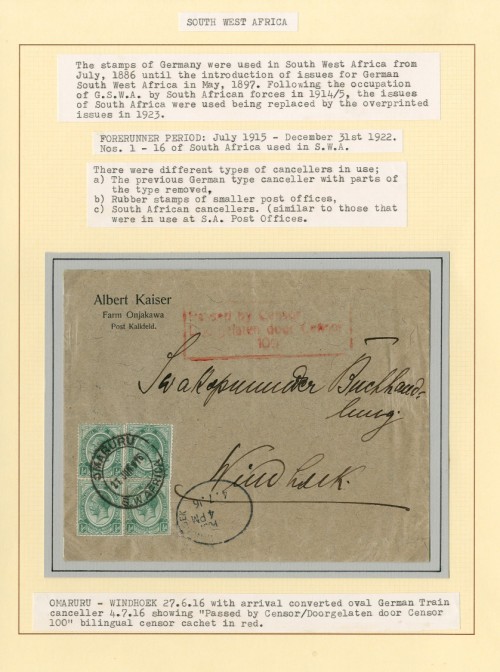 SOUTH WEST AFRICA
The stamps of Germany were used in South West Africa from
July, 1886 until the introduction of issues for German
South West Africa in May, 1897. Following the occupation
of G.S.W.A. by South African forces in 1914/5, the issues
of South Africa were used being replaced by the overprinted
issues in 1923.
FORERUNNER PERIOD: July 1915 - December 31st 1922.
Nos. 1 - 16 of South Africa used in S.W.A.
There were different types of cancellers in use;
a) The previous German type canceller with parts of
the type removed,
b) Rubber stamps of smaller post offices,
c) South African cancellers. (similar to those that
were in use at S.A. Post Offices.
Albert Kaiser
Farm Onjakawa
Post Kalkfeld.
Passed by Censor
laten door Censor
100
Swakopmunder Buchhand-
lung.
Windhoek.
OMARURU
S.W.AFRICA
4.7.16
4 PM
OMARURU - WINDHOEK 27.6.16 with arrival converted oval German Train
canceller 4.7.16 showing "Passed by Censor/Doorgelaten door Censor
100" bilingual censor cachet in red.